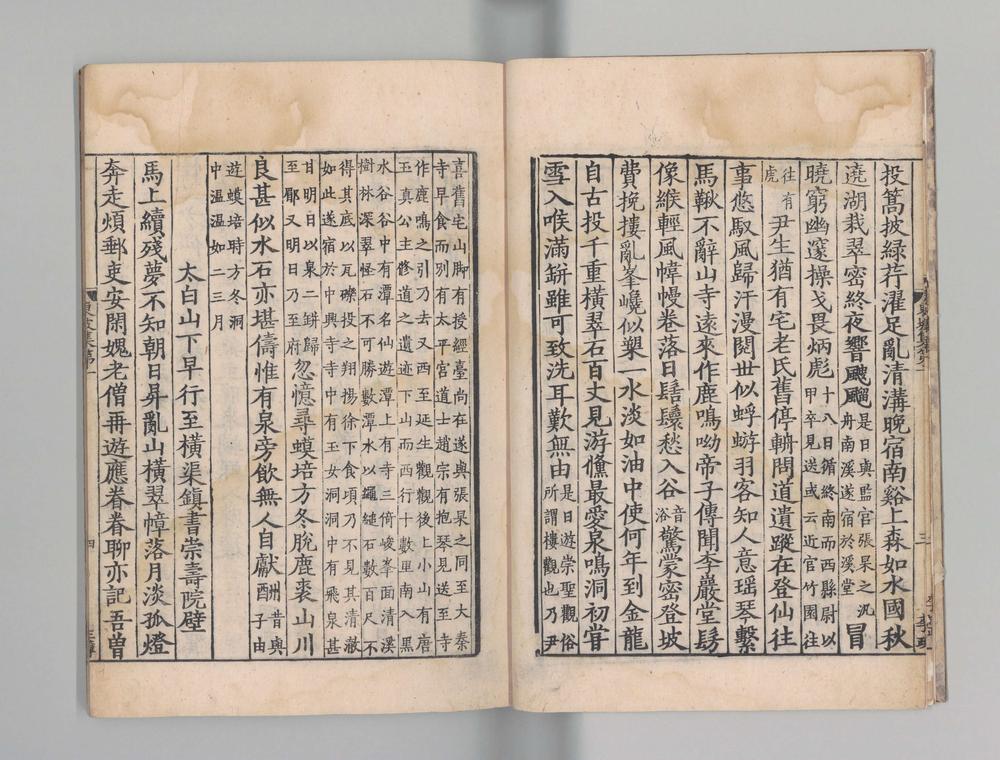 投篙披綠荇濯足亂清溝晚宿南谿上森如水國秋
遶湖栽翠密終夜響颼飀是日與監官張杲之汎舟南溪遂宿於溪堂冒
曉窮幽邃操戈畏炳彪十八日循終南而西縣尉以甲卒見送或云近官竹園往
往有虎尹生猶有宅老氏舊停輈問道遺蹤在登仙往
事悠馭風歸汗漫閱世似蜉蝣羽客知人意瑤琴繫
馬鞦不辭山寺遠來作鹿鳴呦帝子傳聞李巖堂髣
像緱輕風幃幔卷落日髻鬟愁入谷音浴驚蒙密登坡
費挽摟亂峯巉似槊一水淡如油中使何年到金龍
自古投千重橫翠石百丈見游鯈最愛泉鳴洞初甞
雪入喉滿缾雖可致洗耳歎無由是日遊崇聖觀俗所謂樓觀也乃尹
喜舊宅山脚有授經臺尚在遂與張杲之同至大秦
寺早食而別有太平宮道士趙宗有抱琴見送至寺
作鹿鳴之引乃去又西至延生觀觀後上小山有唐
玉真公主修道之遺迹下山而西行十數里南入黑
水谷谷中有潭名仙遊潭上有寺三倚峻峯面清溪
樹林深翠怪石不可勝數潭水以繩縋石數百尺不
得其底以瓦礫投之翔揚徐下食頃乃不見其清澈
如此遂宿於中興寺寺中有玉女洞洞中有飛泉甚
甘明日以泉二缾歸至郿又明日乃至府忽憶尋蟆培方冬脫鹿裘山川
良甚似水石亦堪儔惟有泉旁飲無人自獻酬昔與子由
遊蟆培時方冬洞中溫溫如二三月
太白山下早行至橫渠鎮書崇壽院壁
馬上續殘夢不知朝日昇亂山橫翠幛落月淡孤燈
奔走煩郵吏安閑媿老僧再遊應眷眷聊亦記吾曾